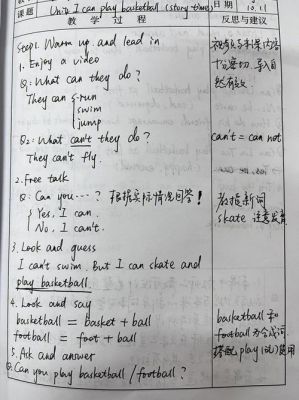 课题 Unit4 I can play basketball (story time) 日期 10.11
教 学 过 程 反思与建议
Step1. Warm up and lead in
1. Enjoy a video
Q1: What can they do?
They can run
swim
jump
十分密切,导入自
然有效.
Q2: What can't they do? can't = can not
They can't fly.
2. Free talk
Q: Can you …? 根据实际情况回答!
Yes, I can.
No, I can't.
教授新词
skate 注意发音
3. Look and guess
I can't swim. But I can skate and
play basketball.
4. Look and say
basketball = basket + ball basketball 和
football = foot + ball football 为合成词
5. Ask and answer 搭配 play
Q: Can you play basketball / football?